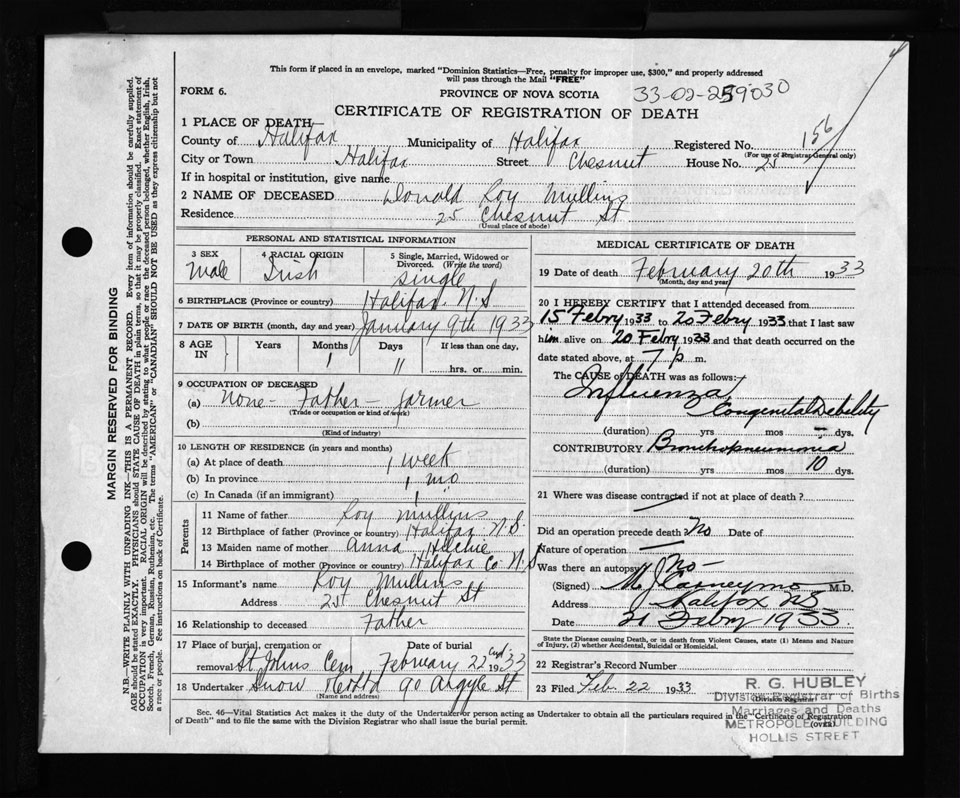 This form if placed in an envelope, marked "Dominion Statistics—Free, penalty for improper use, $300," and properly addressed
will pass through the Mail "FREE"
FORM 6.
PROVINCE OF NOVA SCOTIA
33-02-259030
CERTIFICATE OF REGISTRATION OF DEATH
1 PLACE OF DEATH
County of Halifax Municipality of Halifax Registered No. 156
(For use of Registrar General only)
City or Town Halifax Street Chesnut House No. 25
If in hospital or institution, give name
2 NAME OF DECEASED Donald Roy Mullins
Residence 25 Chesnut St
(Usual place of abode)
PERSONAL AND STATISTICAL INFORMATION
3 SEX
Male
4 RACIAL ORIGIN
Irish
5 Single, Married, Widowed or
Divorced. (Write the word)
single
6 BIRTHPLACE (Province or country) Halifax N.S
7 DATE OF BIRTH (month, day and year) January 9th 1933
8 AGE IN
Years Months Days If less than one day,
1 11 hrs. or min.
9 OCCUPATION OF DECEASED
(a) None - Father - farmer
(Trade or occupation or kind of work)
(b)
(Kind of industry)
10 LENGTH OF RESIDENCE (in years and months)
(a) At place of death 1 week
(b) In province 1 mo
(c) In Canada (if an immigrant) 1 "
Parents
11 Name of father Roy Mullins
12 Birthplace of father (Province or country) Halifax N.S.
13 Maiden name of mother Anna
14 Birthplace of mother (Province or country) Halifax Co N.S
15 Informant's name Roy Mullins
Address 25 Chesnut St
16 Relationship to deceased Father
17 Place of burial, cremation or
removal St Johns Cem
Date of burial
February 22 1933
18 Undertaker Snow 90 Argyle St
(Name and address)
MEDICAL CERTIFICATE OF DEATH
19 Date of death February 20th 1933
(Month, day and year)
20 I HEREBY CERTIFY that I attended deceased from
15 Febry 1933 to 20 Febry 1933 that I last saw
him alive on 20 Febry 1933 and that death occurred on the
date stated above, at 7 p m.
The CAUSE OF DEATH was as follows:
Influenza
Congenital Debility
(duration) yrs mos dys.
CONTRIBUTORY Bronchopneumonia
(duration) yrs mos 10 dys.
21 Where was disease contracted if not at place of death?
Did an operation precede death No Date of
Nature of operation
Was there an autopsy No
(Signed) M. J. Carney M.D.
Address Halifax NS
Date 21 Febry 1933
State the Disease causing Death, or in death from Violent Causes, state (1) Means and Nature
of Injury, (2) whether Accidental, Suicidal or Homicidal.
22 Registrar's Record Number
23 Filed Feb. 22 1933
(Division Registrar)
R. G. HUBLEY
Division Registrar of Births
Marriages and Deaths
METROPOLE BUILDING
HOLLIS STREET
Sec. 46—Vital Statistics Act makes it the duty of the Undertaker or person acting as Undertaker to obtain all the particulars required in the "Certificate of Registration
of Death" and to file the same with the Division Registrar who shall issue the burial permit.
(OVER)
MARGIN RESERVED FOR BINDING
N.B.—WRITE PLAINLY WITH UNFADING INK—THIS IS A PERMANENT RECORD. Every item of information should be carefully supplied.
AGE should be stated EXACTLY. PHYSICIANS should STATE CAUSE OF DEATH in plain terms, so that it may be properly classified. Exact statement of
OCCUPATION is very important. RACIAL ORIGIN will be described by stating to what people or race the deceased person belonged, whether English, Irish,
Scotch, French, German, Russian, Ruthenian, etc. The terms "AMERICAN" or "CANADIAN" SHOULD NOT BE USED as they express citizenship but not
a race or people. See instructions on back of Certificate.